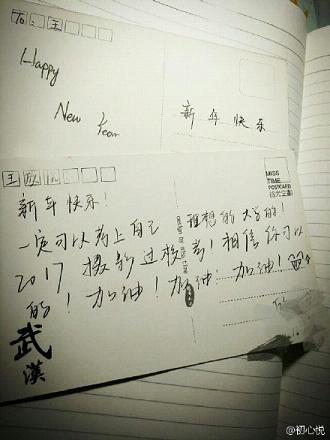 To: 王
Happy
New Year
新年快乐
王
新年快乐!
一定可以考上自己理想的大学的!
2017 考! 相信你可以
的! 加油! 加油! 加油!
武漢
MISS
TIME
POSTCARD
To:
@初心悦